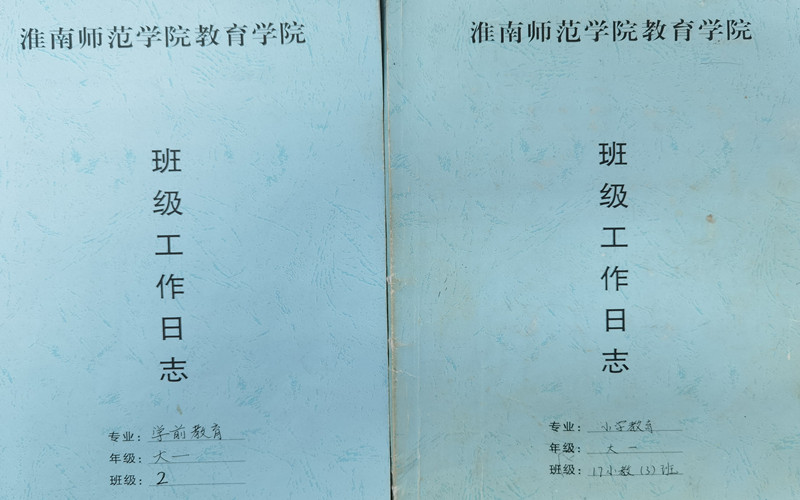 淮南师范学院教育学院
班级工作日志
专业：学前教育
年级：大一
班级：2
淮南师范学院教育学院
班级工作日志
专业：小学教育
年级：大一
班级：17小教（3）班